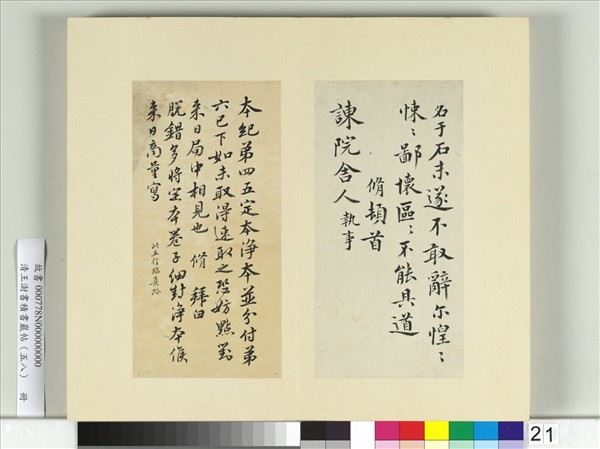 名于石未遂不敢辭尔惶〻
悚〻鄙懷區〻不能具道
脩頓首
諫院舍人執事
本紀第四五定本淨本並分付第
六已下如未取得速取之恐妨點對
来日局中相見也 脩 拜白
脱錯多將空本卷子細對淨本候
来日商量寫
此五行臨真跡
故書 000778N00000000
清王澍書積書巖帖(五八) 冊
21